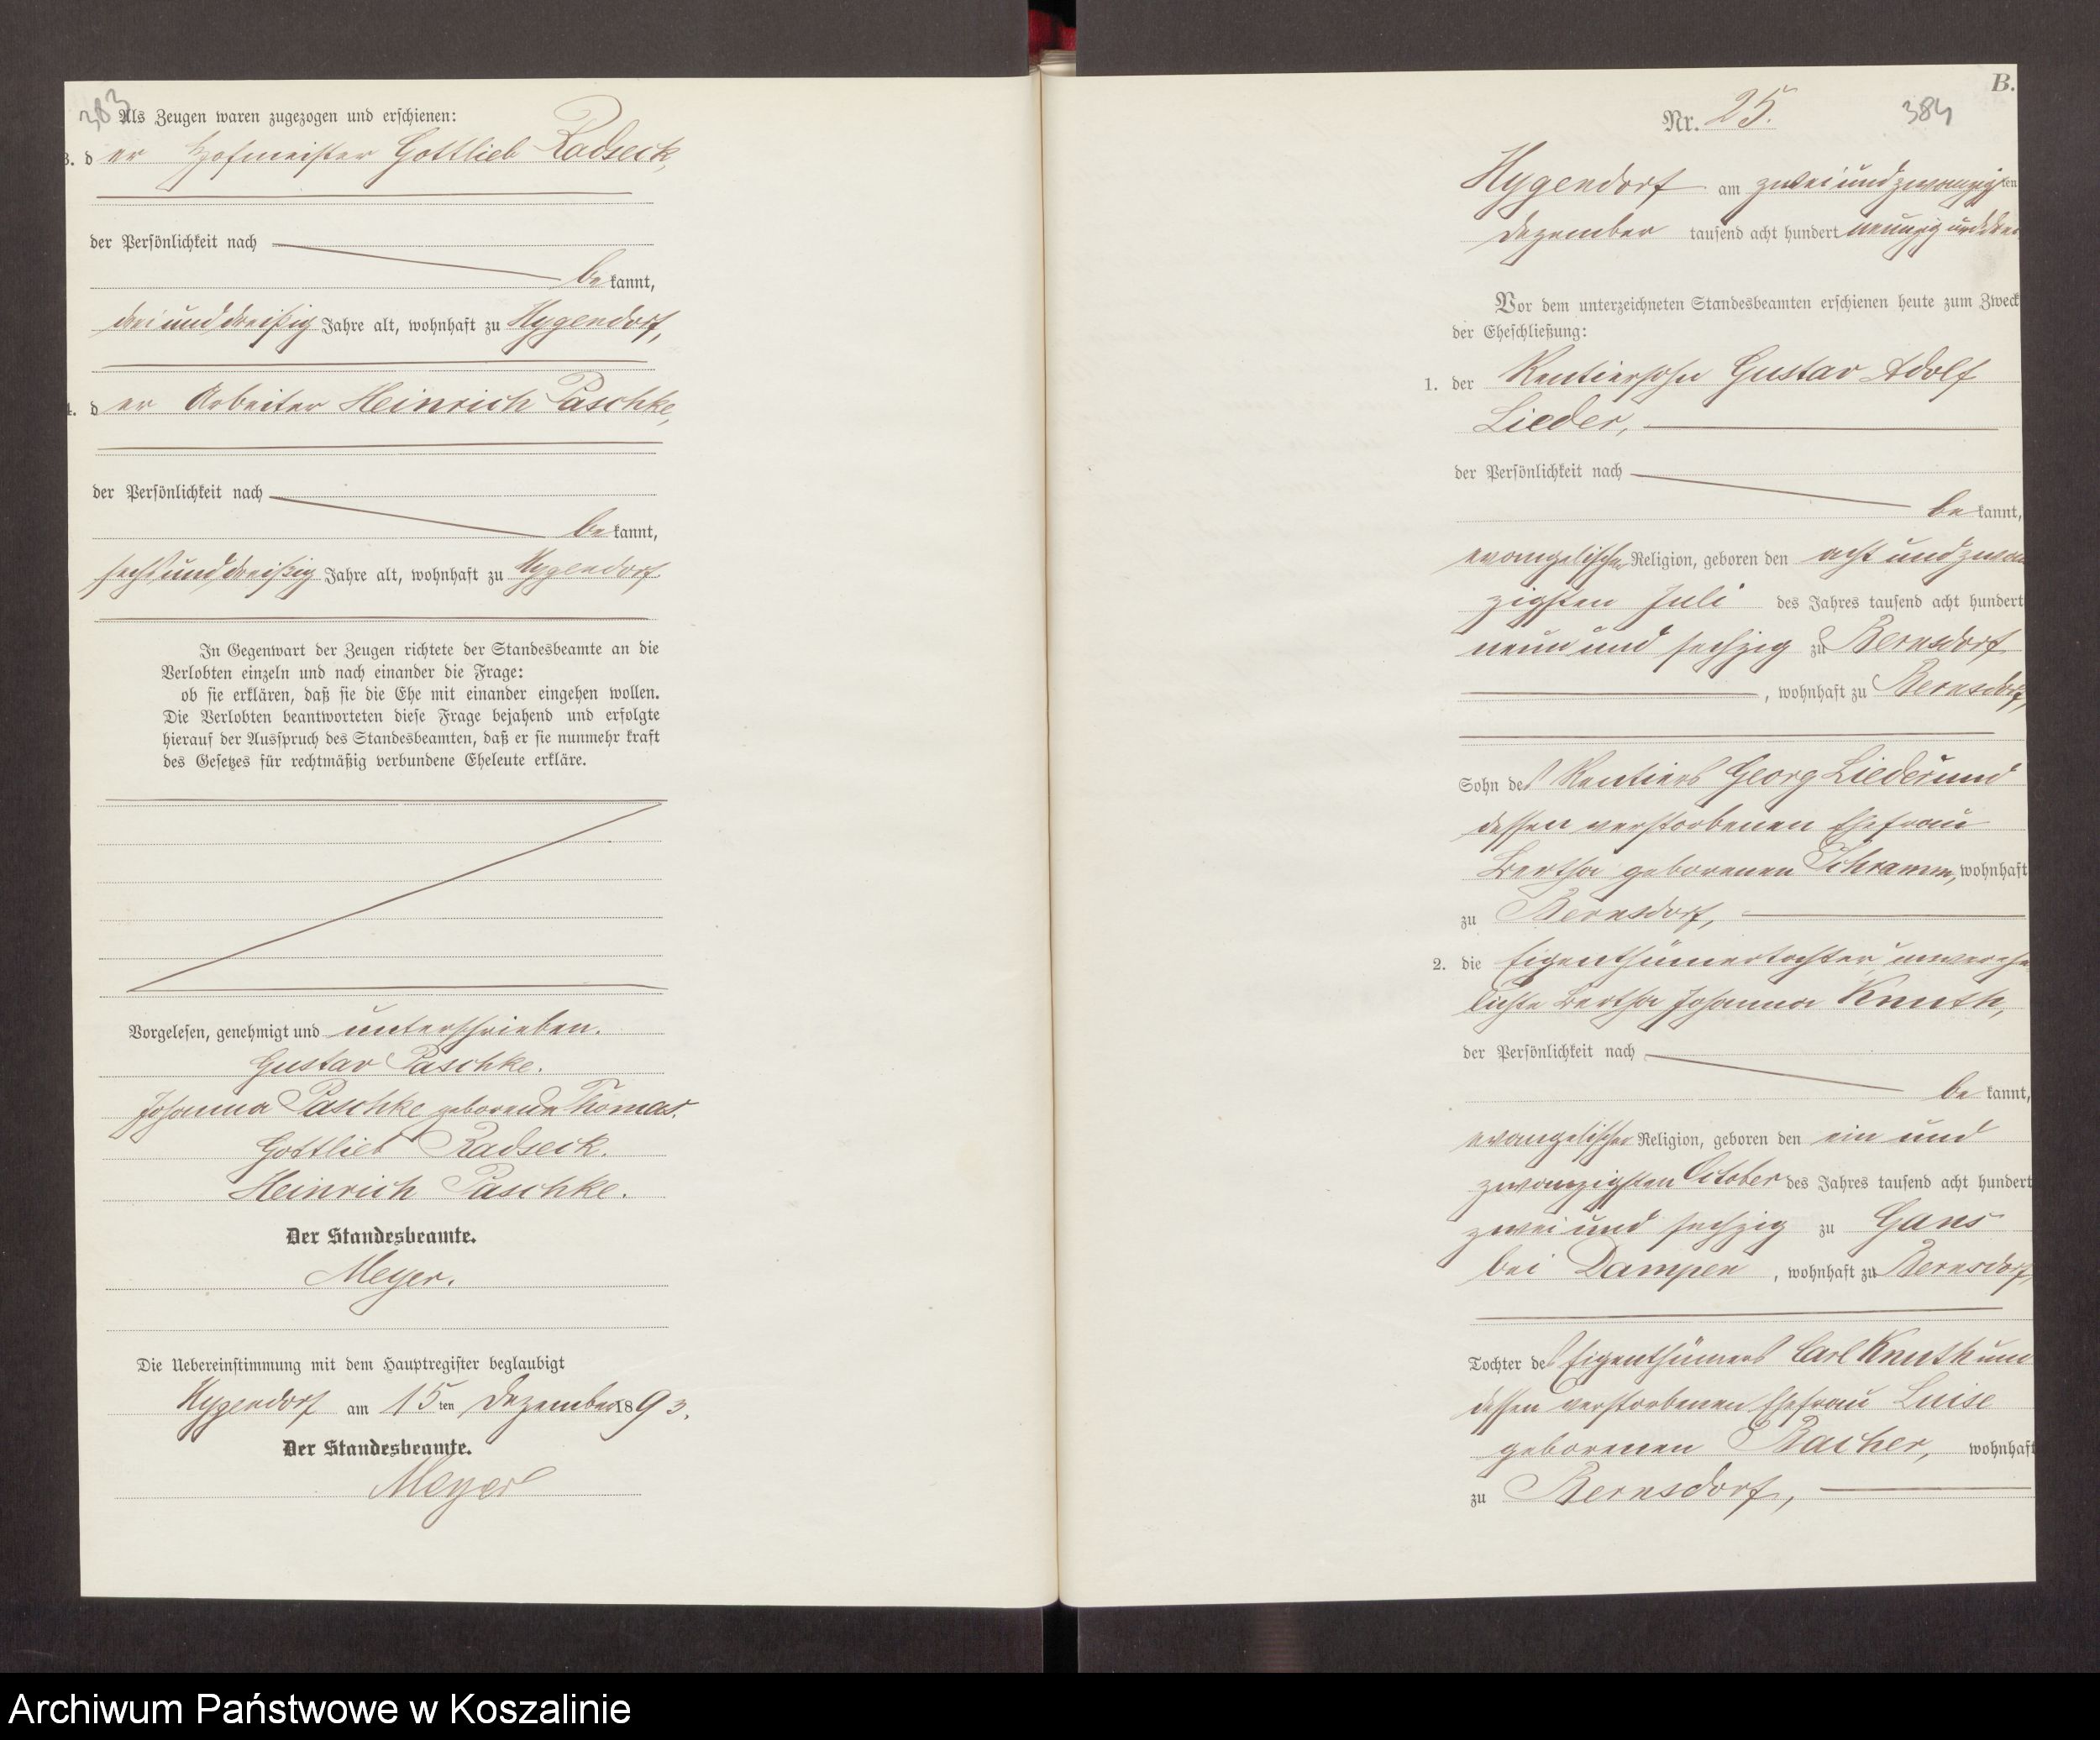 383
Als Zeugen waren zugezogen und erschienen:
3. d er Hofmeister Gottlieb Radseck,
der Persönlichkeit nach
be kannt,
drei und dreißig Jahre alt, wohnhaft zu Hygendorf,
4. d er Arbeiter Heinrich Paschke,
der Persönlichkeit nach
be kannt,
sechs und dreißig Jahre alt, wohnhaft zu Hygendorf
In Gegenwart der Zeugen richtete der Standesbeamte an die
Verlobten einzeln und nach einander die Frage:
ob sie erklären, daß sie die Ehe mit einander eingehen wollen.
Die Verlobten beantworteten diese Frage bejahend und erfolgte
hierauf der Ausspruch des Standesbeamten, daß er sie nunmehr kraft
des Gesetzes für rechtmäßig verbundene Eheleute erkläre.
Vorgelesen, genehmigt und unterschrieben.
Gustav Paschke.
Johanna Paschke geborene Thomas.
Gottlieb Radseck.
Heinrich Paschke.
Der Standesbeamte.
Meyer.
Die Uebereinstimmung mit dem Hauptregister beglaubigt
Hygendorf am 15ten Dezember 1893.
Der Standesbeamte.
Meyer
B.
Nr. 25. 384
Hygendorf am zwei und zwanzigsten
Dezember tausend acht hundert neunzig und drei
Vor dem unterzeichneten Standesbeamten erschienen heute zum Zweck
der Eheschließung:
1. der Rentiersohn Gustav Adolf
Lieder,
der Persönlichkeit nach
be kannt,
evangelischer Religion, geboren den acht und zwan
zigsten Juli des Jahres tausend acht hundert
neun und sechzig zu Bernsdorf
, wohnhaft zu Bernsdorf,
Sohn des Rentiers Georg Lieder und
dessen verstorbenen Ehefrau
Bertha geborenen Schramm, wohnhaft
zu Bernsdorf,
2. die Eigenthümertochter, unverehe
lichte Bertha Johanna Knuth,
der Persönlichkeit nach
be kannt,
evangelischer Religion, geboren den ein und
zwanzigsten October des Jahres tausend acht hundert
zwei und sechzig zu Gans
bei Dampen, wohnhaft zu Bernsdorf,
Tochter des Eigenthümers Carl Knuth und
dessen verstorbenen Ehefrau Luise
geborenen Bacher, wohnhaft
zu Bernsdorf,
Archiwum Państwowe w Koszalinie